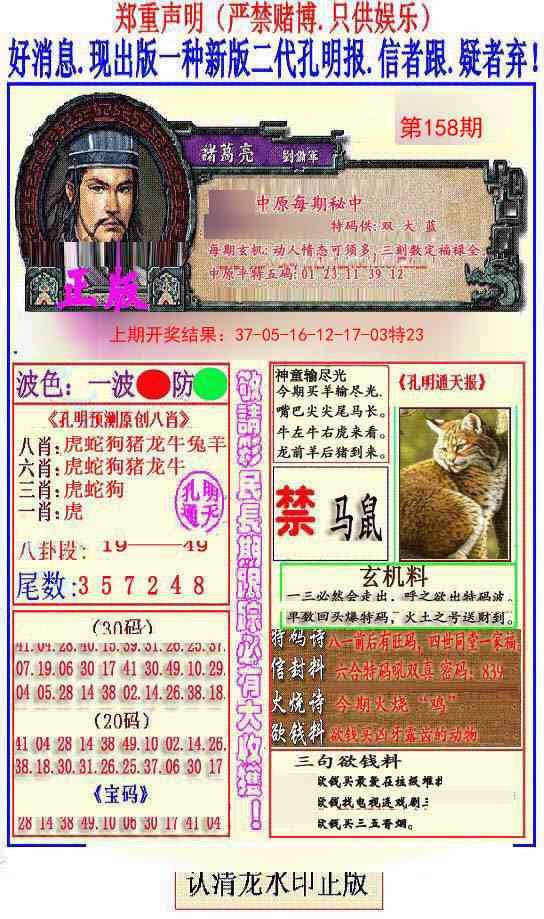 郑重声明（严禁赌博.只供娱乐）
好消息.现出版一种新版二代孔明报.信者跟.疑者弃!
第158期
諸葛亮 劉備軍
中原每期秘中
特码供:双 大 蓝
每期玄机:动人情态可须多,三刻数定福禄全
中原平特五码:01 23 11 39 12
正版
上期开奖结果：37-05-16-12-17-03特23
波色：一波 防
《孔明预测原创八肖》
八肖:虎蛇狗猪龙牛兔羊
六肖:虎蛇狗猪龙牛
三肖:虎蛇狗
一肖:虎
孔明
通天
八卦段: 19——49
尾数:3 5 7 2 4 8
(30码)
41.04.28.40.15.39.31.26.25.37
07.19.06 30 17 41 30.49.10.29
04 05.28 14 38 02.14.26.38.18
(20码)
41 04 28 14 38 49.10 02.14.26.
38.18.30.31.26.25.37.06 30 17
《宝码》
28 14 38 49.10 06 30 17 41 04
敬請彩民長期跟踪必有大收獲！
神童输尽光
今期买羊输尽光.
嘴巴尖尖尾马长。
牛左牛右虎来看。
龙前羊后猪到来。
《孔明通天报》
禁 马鼠
玄机料
一三必然会走出，呼之欲出特码波。
早数回头爆特码，火土之号送财到。
特码诗 八一前后有匹码,四世同堂一家福
信封料 六合特码吼双真 密码:839
火烧诗 今期火烧“鸡”
欲钱料 欲钱买凶牙露齿的动物
三句欲钱料
欲钱买最爱在垃圾堆扌
欲钱找电视连戏剧三
欲钱买三五香烟。
认清龙水印正版